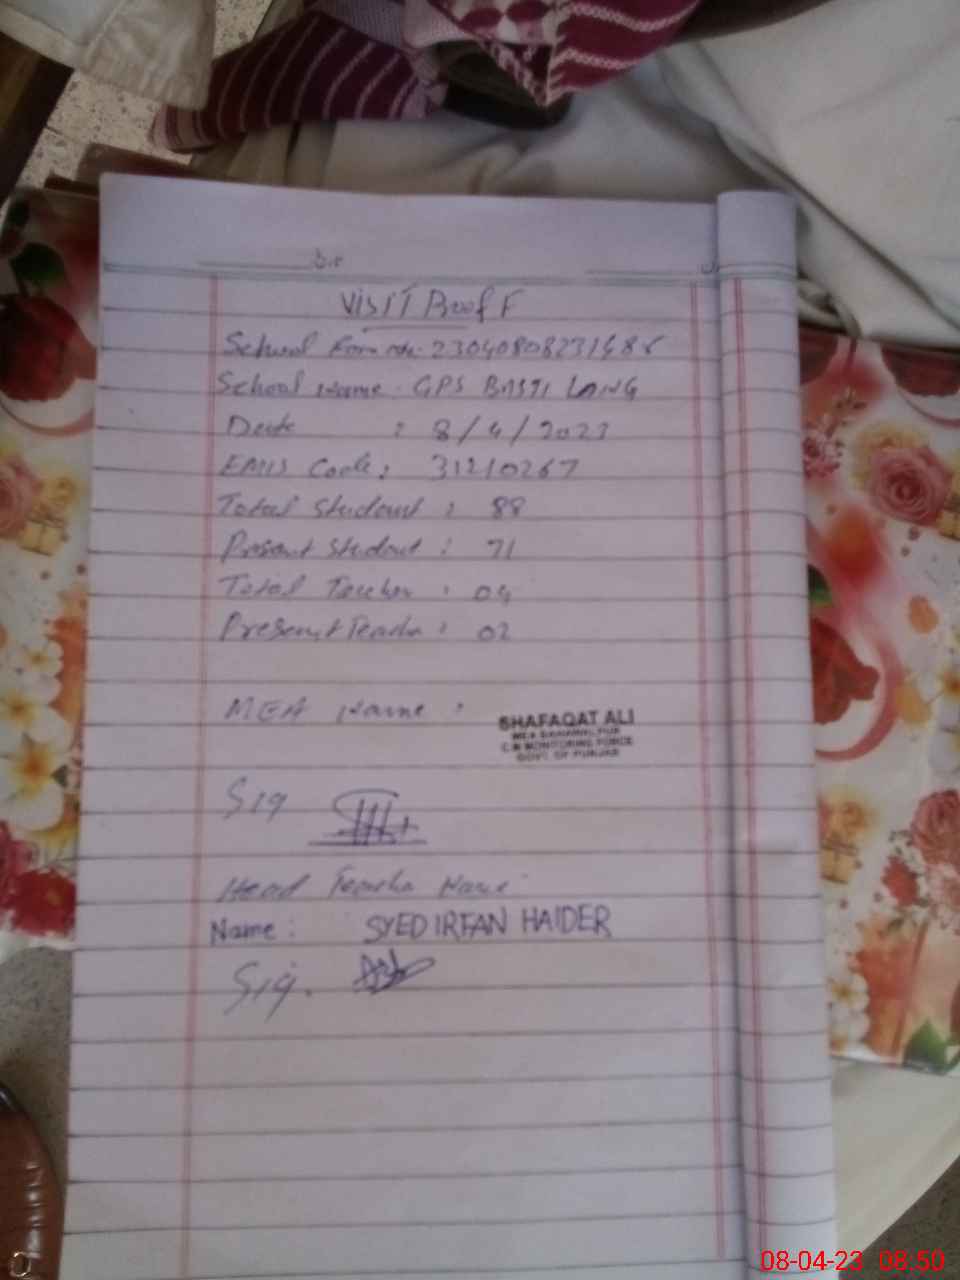 Visit Proof F
School Form No. 23040808231686
School Name : GPS BASTI LANG
Date : 8/4/2023
EMIS Code : 31210267
Total Student : 88
Present Student : 71
Total Teacher : 04
Present Teacher : 02
MEA Name :
SHAFAQAT ALI
MEA BAHAWALPUR
C.M MONITORING FORCE
GOVT. OF PUNJAB
Sig
Head Teacher Name
Name : SYED IRFAN HAIDER
Sig.
08-04-23 08:50